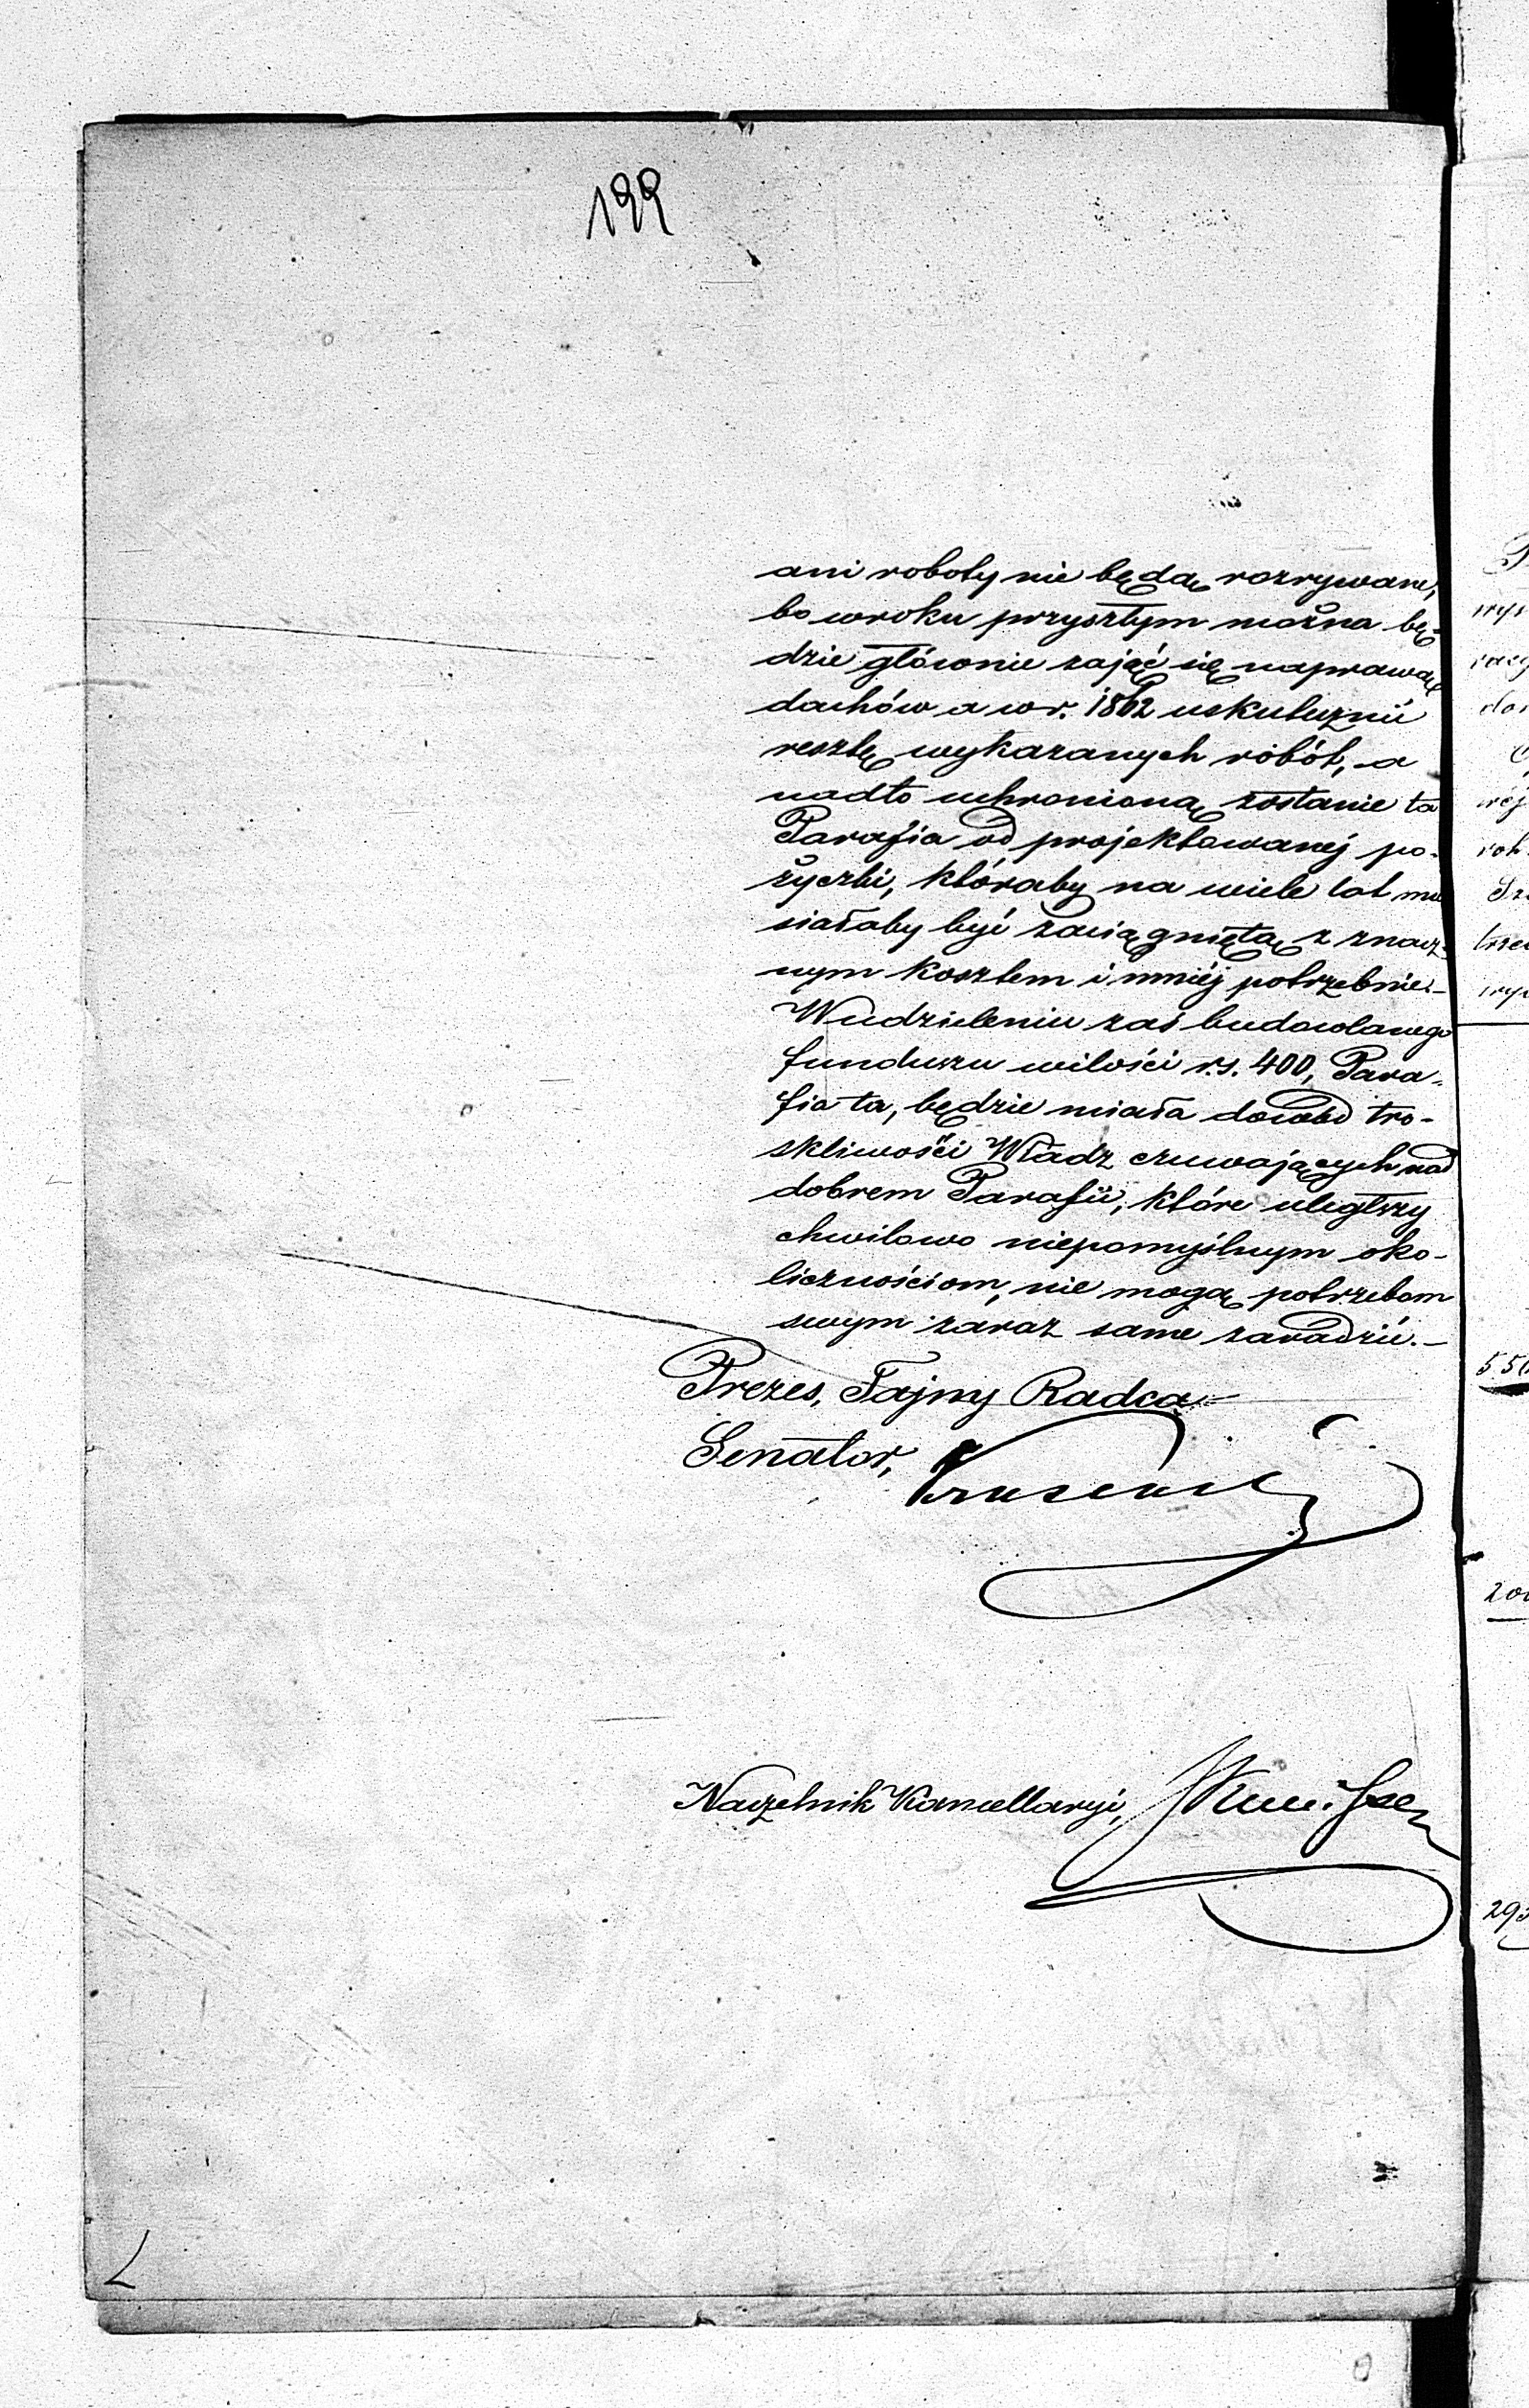 199
ani roboty nie będą rozrywane,
bo w roku przyszłym można bę-
dzie głównie zająć się naprawą
dachów a w r. 1862 uskutecznić
resztę wykazanych robót, a
nadto uchronioną zostanie ta
Parafia od projektowanej po-
życzki, któraby na wiele lat mu
siałaby być zaciągniętą z znacz-
nym kosztem i mniéj potrzebnie.-
W udzieleniu zaś budowlanego
funduszu w ilości r.s. 400, Para-
fia ta, będzie miała dowód tro-
skliwości Władz czuwających nad
dobrem Parafii, które uległszy
chwilowo niepomyślnym oko-
licznościom, nie mogą potrzebom
swym zaraz same zaradzić.-
Prezes, Tajny Radca
Senator,
Naczelnik Kancellaryi,